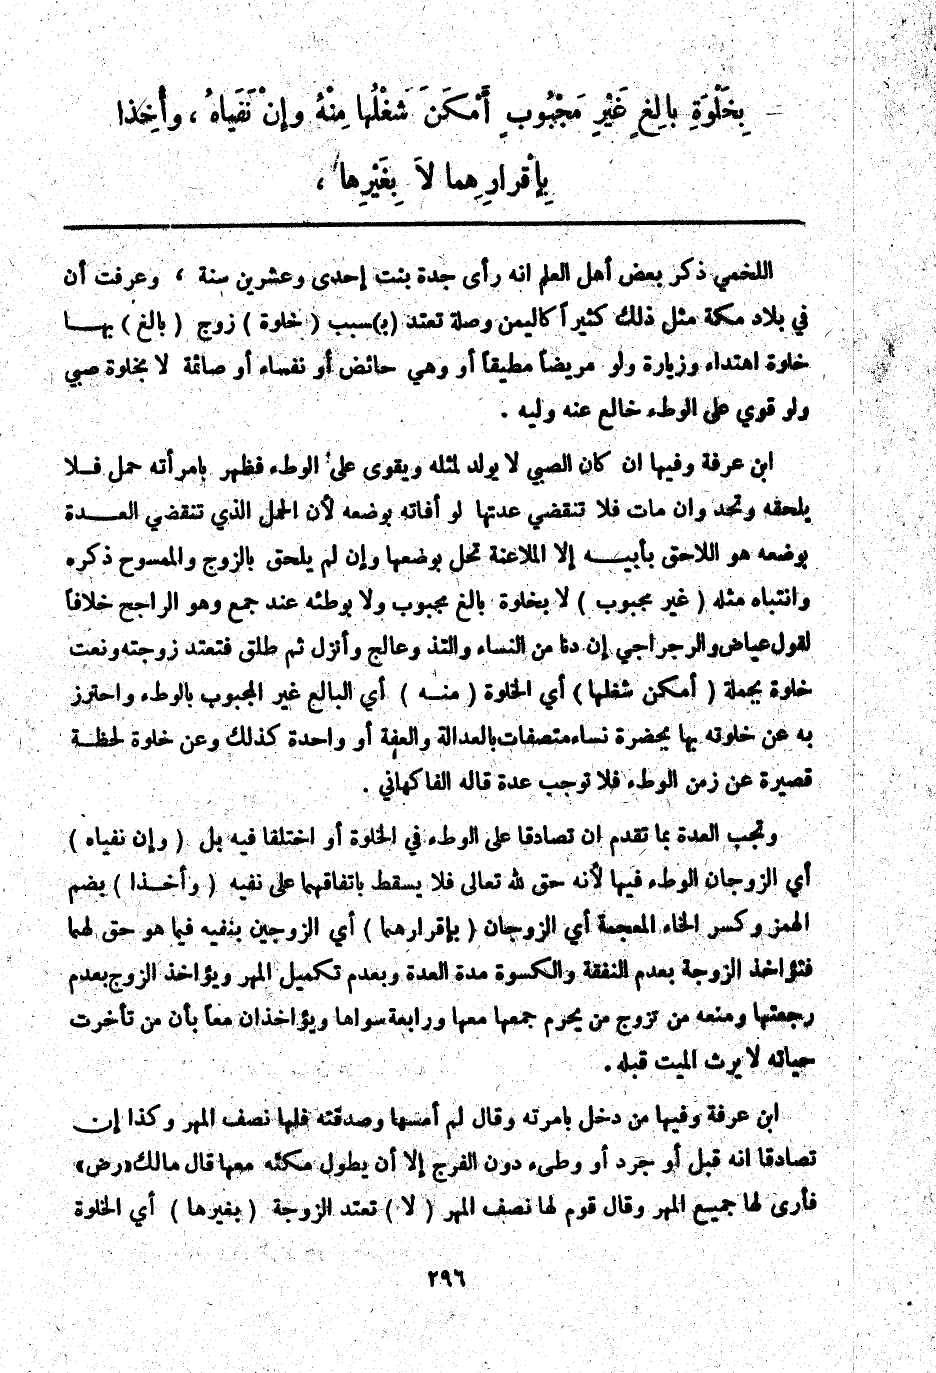 بِخَلْوَةِ بالِغٍ غَيْرِ مَجْبُوبٍ أَمْكَنَ شَغْلُها مِنْهُ وإنْ نَفَياهُ ، وأُخِذا
بِإقْرارِهِما لاَ بِغَيْرِها ،
اللخمي ذكر بعض أهل العلم انه رأى جدة بنت إحدى وعشرين سنة ، وعرفت أن
في بلاد مكة مثل ذلك كثيراً كاليمن وصلة تعتد (بـ)سبب ( خلوة ) زوج ( بالغ ) بهــا
خلوة اهتداء وزيارة ولو مريضاً مطيقاً أو وهي حائض أو نفساء أو صائمة لا بخلوة صبي
ولو قوي على الوطء خالع عنه وليه .
ابن عرفة وفيها ان كان الصبي لا يولد لمثله ويقوى على الوطء فظهر بامرأته حمل فــلا
يلحقه وتحد وان مات فلا تنقضي عدتها لو أفاته بوضعه لأن الحمل الذي تنقضي العــدة
بوضعه هو اللاحق بأبيــه إلا الملاعنة تحل بوضعها وإن لم يلحق بالزوج والممسوح ذكره
وانثياه مثله ( غير مجبوب ) لا بخلوة بالغ مجبوب ولا بوطئه عند جمع وهو الراجح خلافاً
لقول عياض والرجراجي إن دنا من النساء والتذ وعالج وأنزل ثم طلق فتعتد زوجته ونعت
خلوة بجملة ( أمكن شغلها ) أي الخلوة ( منــه ) أي البالغ غير المجبوب بالوطء واحترز
به عن خلوته بها بحضرة نساء متصفات بالعدالة والعفة أو واحدة كذلك وعن خلوة لحظــة
قصيرة عن زمن الوطء فلا توجب عدة قاله الفاكهاني .
وتجب العدة بما تقدم ان تصادقا على الوطء في الخلوة أو اختلفا فيه بل ( وإن نفياه )
أي الزوجان الوطء فيها لأنه حق لله تعالى فلا يسقط باتفاقهما على نفيه ( وأخــذا ) بضم
الهمز وكسر الخاء المعجمة أي الزوجان ( بإقرارهما ) أي الزوجين بنفيه فيما هو حق لهما
فتؤاخذ الزوجة بعدم النفقة والكسوة مدة العدة وبعدم تكميل المهر ويؤاخذ الزوج بعدم
رجعتها ومنعه من تزوج من يحرم جمعها معها ورابعة سواها ويؤاخذان معاً بأن من تأخرت
حياته لا يرث الميت قبله .
ابن عرفة وفيها من دخل بامرته وقال لم أمسها وصدقته فلها نصف المهر وكذا إن
تصادقا انه قبل أو جرد أو وطىء دون الفرج إلا أن يطول مكثه معها قال مالك «رض»
فأرى لها جميــع المهر وقال قوم لها نصف المهر ( لا ) تعتد الزوجة ( بغيرها ) أي الخلوة
٢٩٦